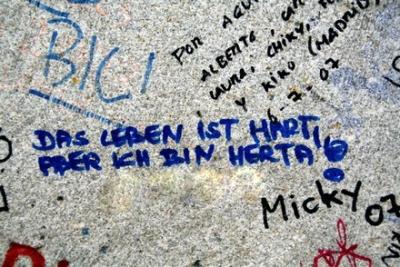 BICI
POR AQUI
ALBERTO,
LAURA, CHIKY,
Y KIKO (MADRID)
7-07
DAS LEBEN IST HART,
ABER ICH BIN HERTA!
Micky 07